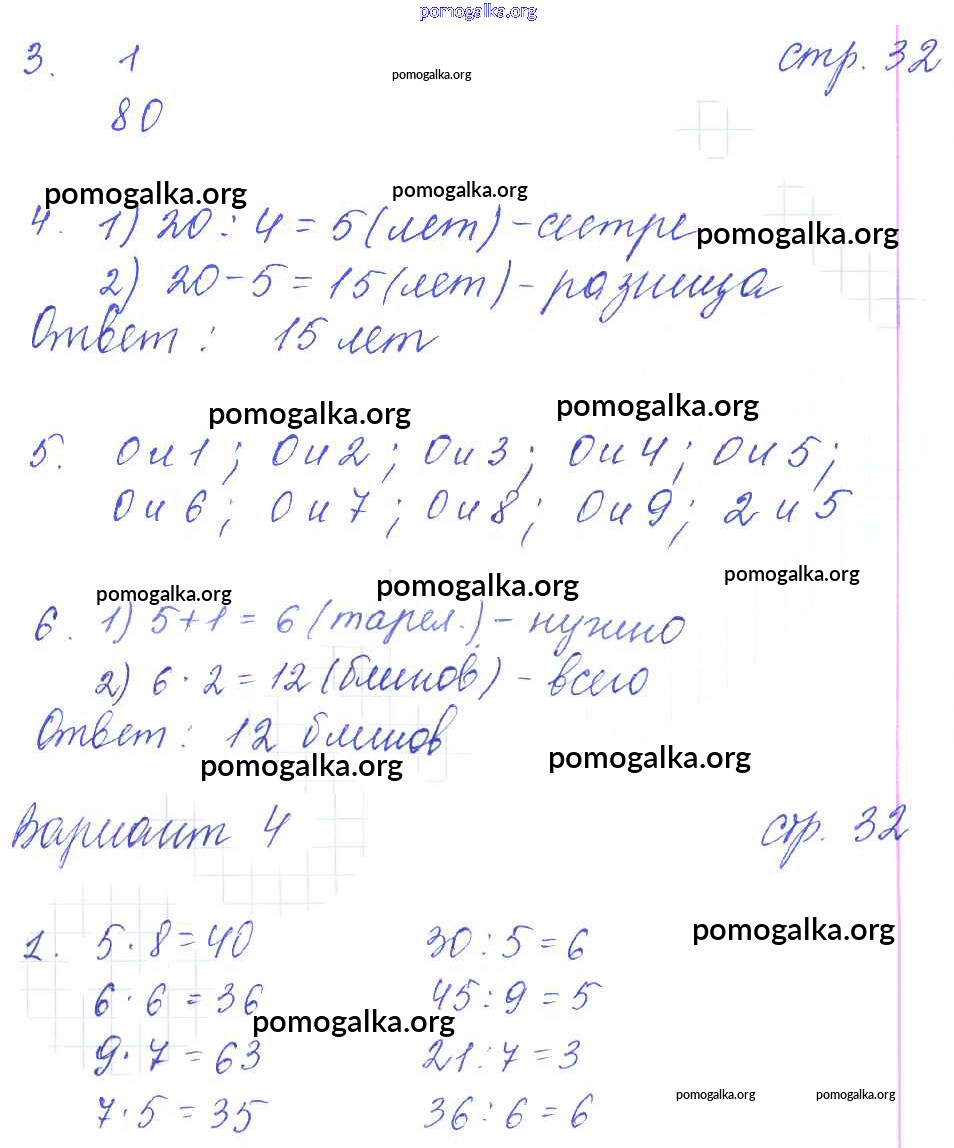 pomogalka.org
3. 1 стр. 32
pomogalka.org
80
pomogalka.org pomogalka.org
4. 1) 20 : 4 = 5 (лет) - сестре
pomogalka.org
2) 20 - 5 = 15 (лет) - разница
Ответ : 15 лет
pomogalka.org pomogalka.org
5. 0 и 1 ; 0 и 2 ; 0 и 3 ; 0 и 4 ; 0 и 5 ;
0 и 6 ; 0 и 7 ; 0 и 8 ; 0 и 9 ; 2 и 5
pomogalka.org pomogalka.org pomogalka.org
6. 1) 5 + 1 = 6 (тарел.) - нужно
2) 6 · 2 = 12 (блинов) - всего
Ответ : 12 блинов
pomogalka.org pomogalka.org
Вариант 4 стр. 32
pomogalka.org
1. 5 · 8 = 40 30 : 5 = 6
6 · 6 = 36 45 : 9 = 5
pomogalka.org
9 · 7 = 63 21 : 7 = 3
pomogalka.org pomogalka.org
7 · 5 = 35 36 : 6 = 6